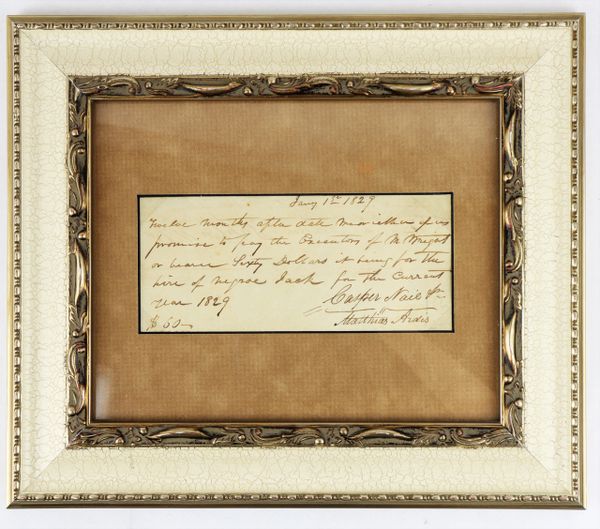 Jany 1st 1829
Twelve months after date we or either of us
promise to pay the Executors of M Wright
or bearer Sixty Dollars it being for the
hire of negroe Jack for the Current
year 1829
Casper Nail Jr
$60
Matthias Ardis